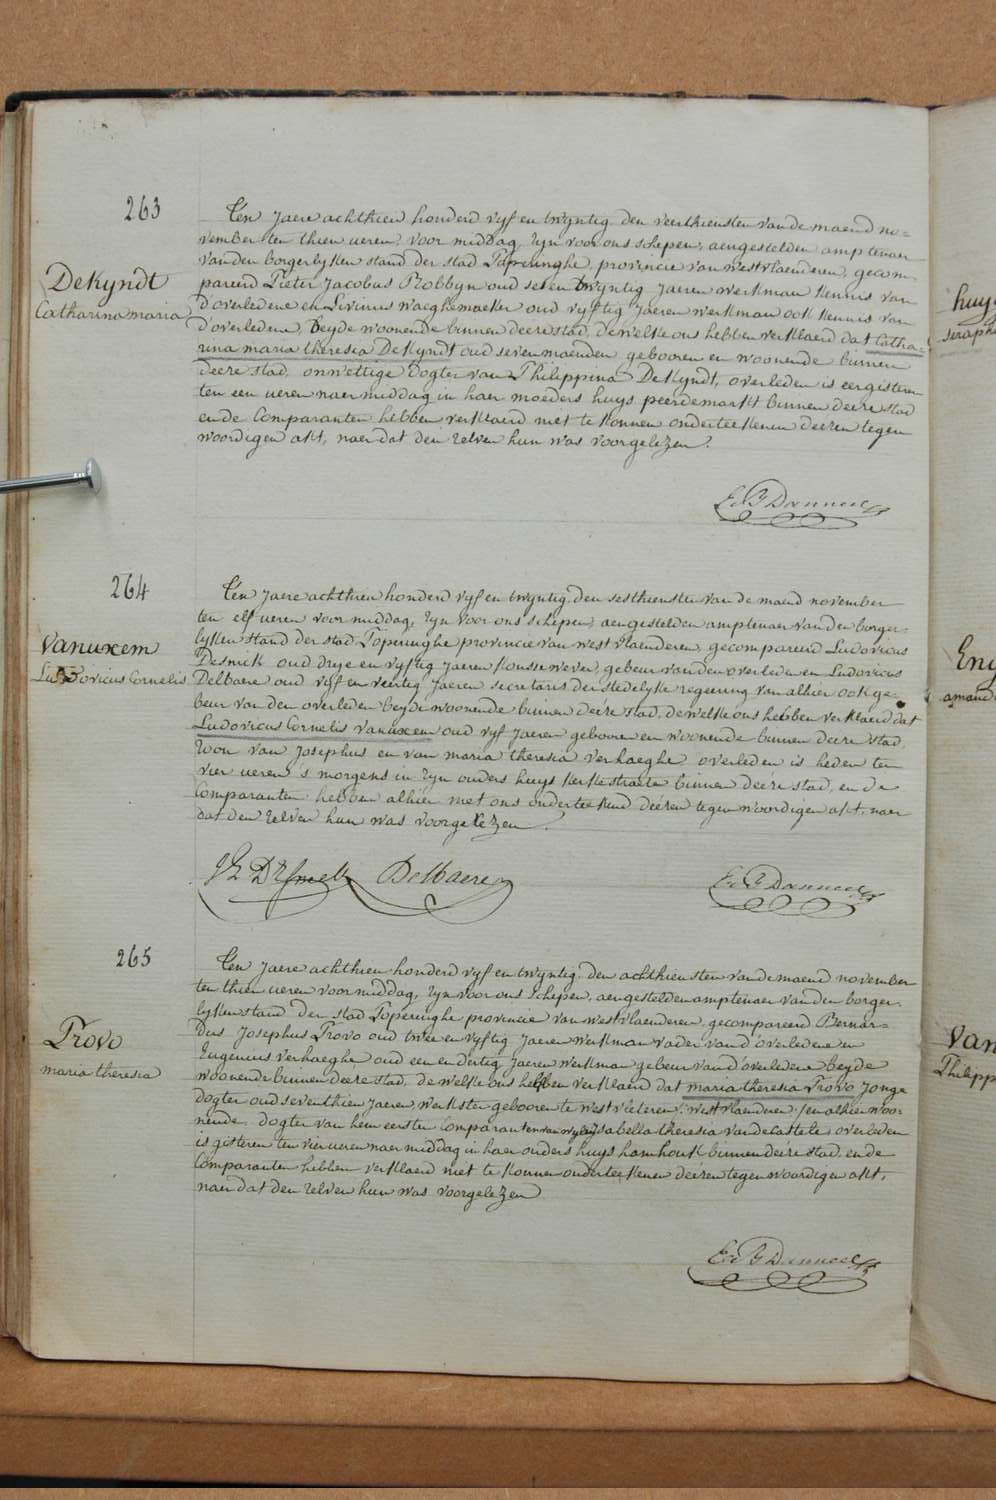 263
DeKyndt
Catharina maria
Ten Jaere achthien honderd vyf en twyntig den veerthiensten van de maend no=
vember ten thien ueren voor middag, zyn voor ons schepen, aengestelden amptenaer
van den borgerlyken stand der stad Poperinghe, provincie van westvlaenderen, gecom=
pareerd Pieter Jacobus Robbyn oud seven twyntig Jaeren werkman kennis van
d'overledene en Livinus Waeghemaeker oud vyftig Jaeren werkman ook kennis van
d'overledene, Beyde woonende binnen deere stad, de welke ons hebben verklaerd dat Catha=
rina maria theresia DeKyndt oud seven maenden gebooren en woonende binnen
deere stad, onwettige Dogter van Philippina DeKyndt, overleden is eergisteren
ten een ueren naermiddag in haer moeders huys peerdemarkt binnen deere stad
en de Comparanten hebben verklaerd niet te konnen onderteekenen deezen tegen
woordigen akt, naer dat den zelven hun was voorgelezen.
264
Vanuxem
Ludovicus Cornelis
Ten Jaere achthien honderd vyf en twyntig, den sesthiensten van de maend november
ten elf ueren voor middag, zyn voor ons schepen, aengestelden amptenaer van den borger-
lyken stand der stad Poperinghe provincie van westvlaenderen, gecompareerd Ludovicus
Desmick oud drye en vyftig Jaeren koussewever, gebeur van den overleden en Ludovicus
Delbaere oud vyf en veertig Jaeren secretaris der stedelyke regeering van alhier ook ge-
beur van den overleden beyde woonende binnen deere stad, de welke ons hebben verklaerd dat
Ludovicus Cornelis Vanuxem oud vyf Jaeren gebooren en woonende binnen deere stad,
zoon van Josephus en van maria theresia Verhaeghe overleden is heden ten
vier ueren 's morgens in zyn ouders huys kerkestraete binnen deere stad, en de
Comparanten hebben alhier met ons onderteekend deezen tegenwoordigen akt, naer
dat den zelven hun was voorgelezen.
Delbaere
265
Provo
maria theresia
Ten Jaere achthien honderd vyf en twyntig den achthiensten van de maend november
ten thien ueren voor middag, zyn voor ons schepen, aengestelden amptenaer van den borger-
lyken stand der stad Poperinghe provincie van westvlaenderen, gecompareerd Bernar-
dus Josephus Provo oud twee en vyftig Jaeren werkman vader van d'overledene en
Eugenius Verhaeghe oud een en dertig Jaeren werkman gebeur van d'overledene Beyde
woonende binnen deere stad, de welke ons hebben verklaerd dat maria theresia Provo Jonge
dogter oud seventhien Jaeren werkster gebooren te westvleteren (westvlaenderen) en alhier woo=
nende, dogter van hem eersten Comparant en van wylen Isabella theresia Vandecasteele, overleden
is gisteren ten vier ueren naer middag in haer ouders huys hamhoek binnen deere stad, en de
Comparanten hebben verklaerd niet te konnen onderteekenen deezen tegenwoordigen akt,
naer dat den zelven hun was voorgelezen